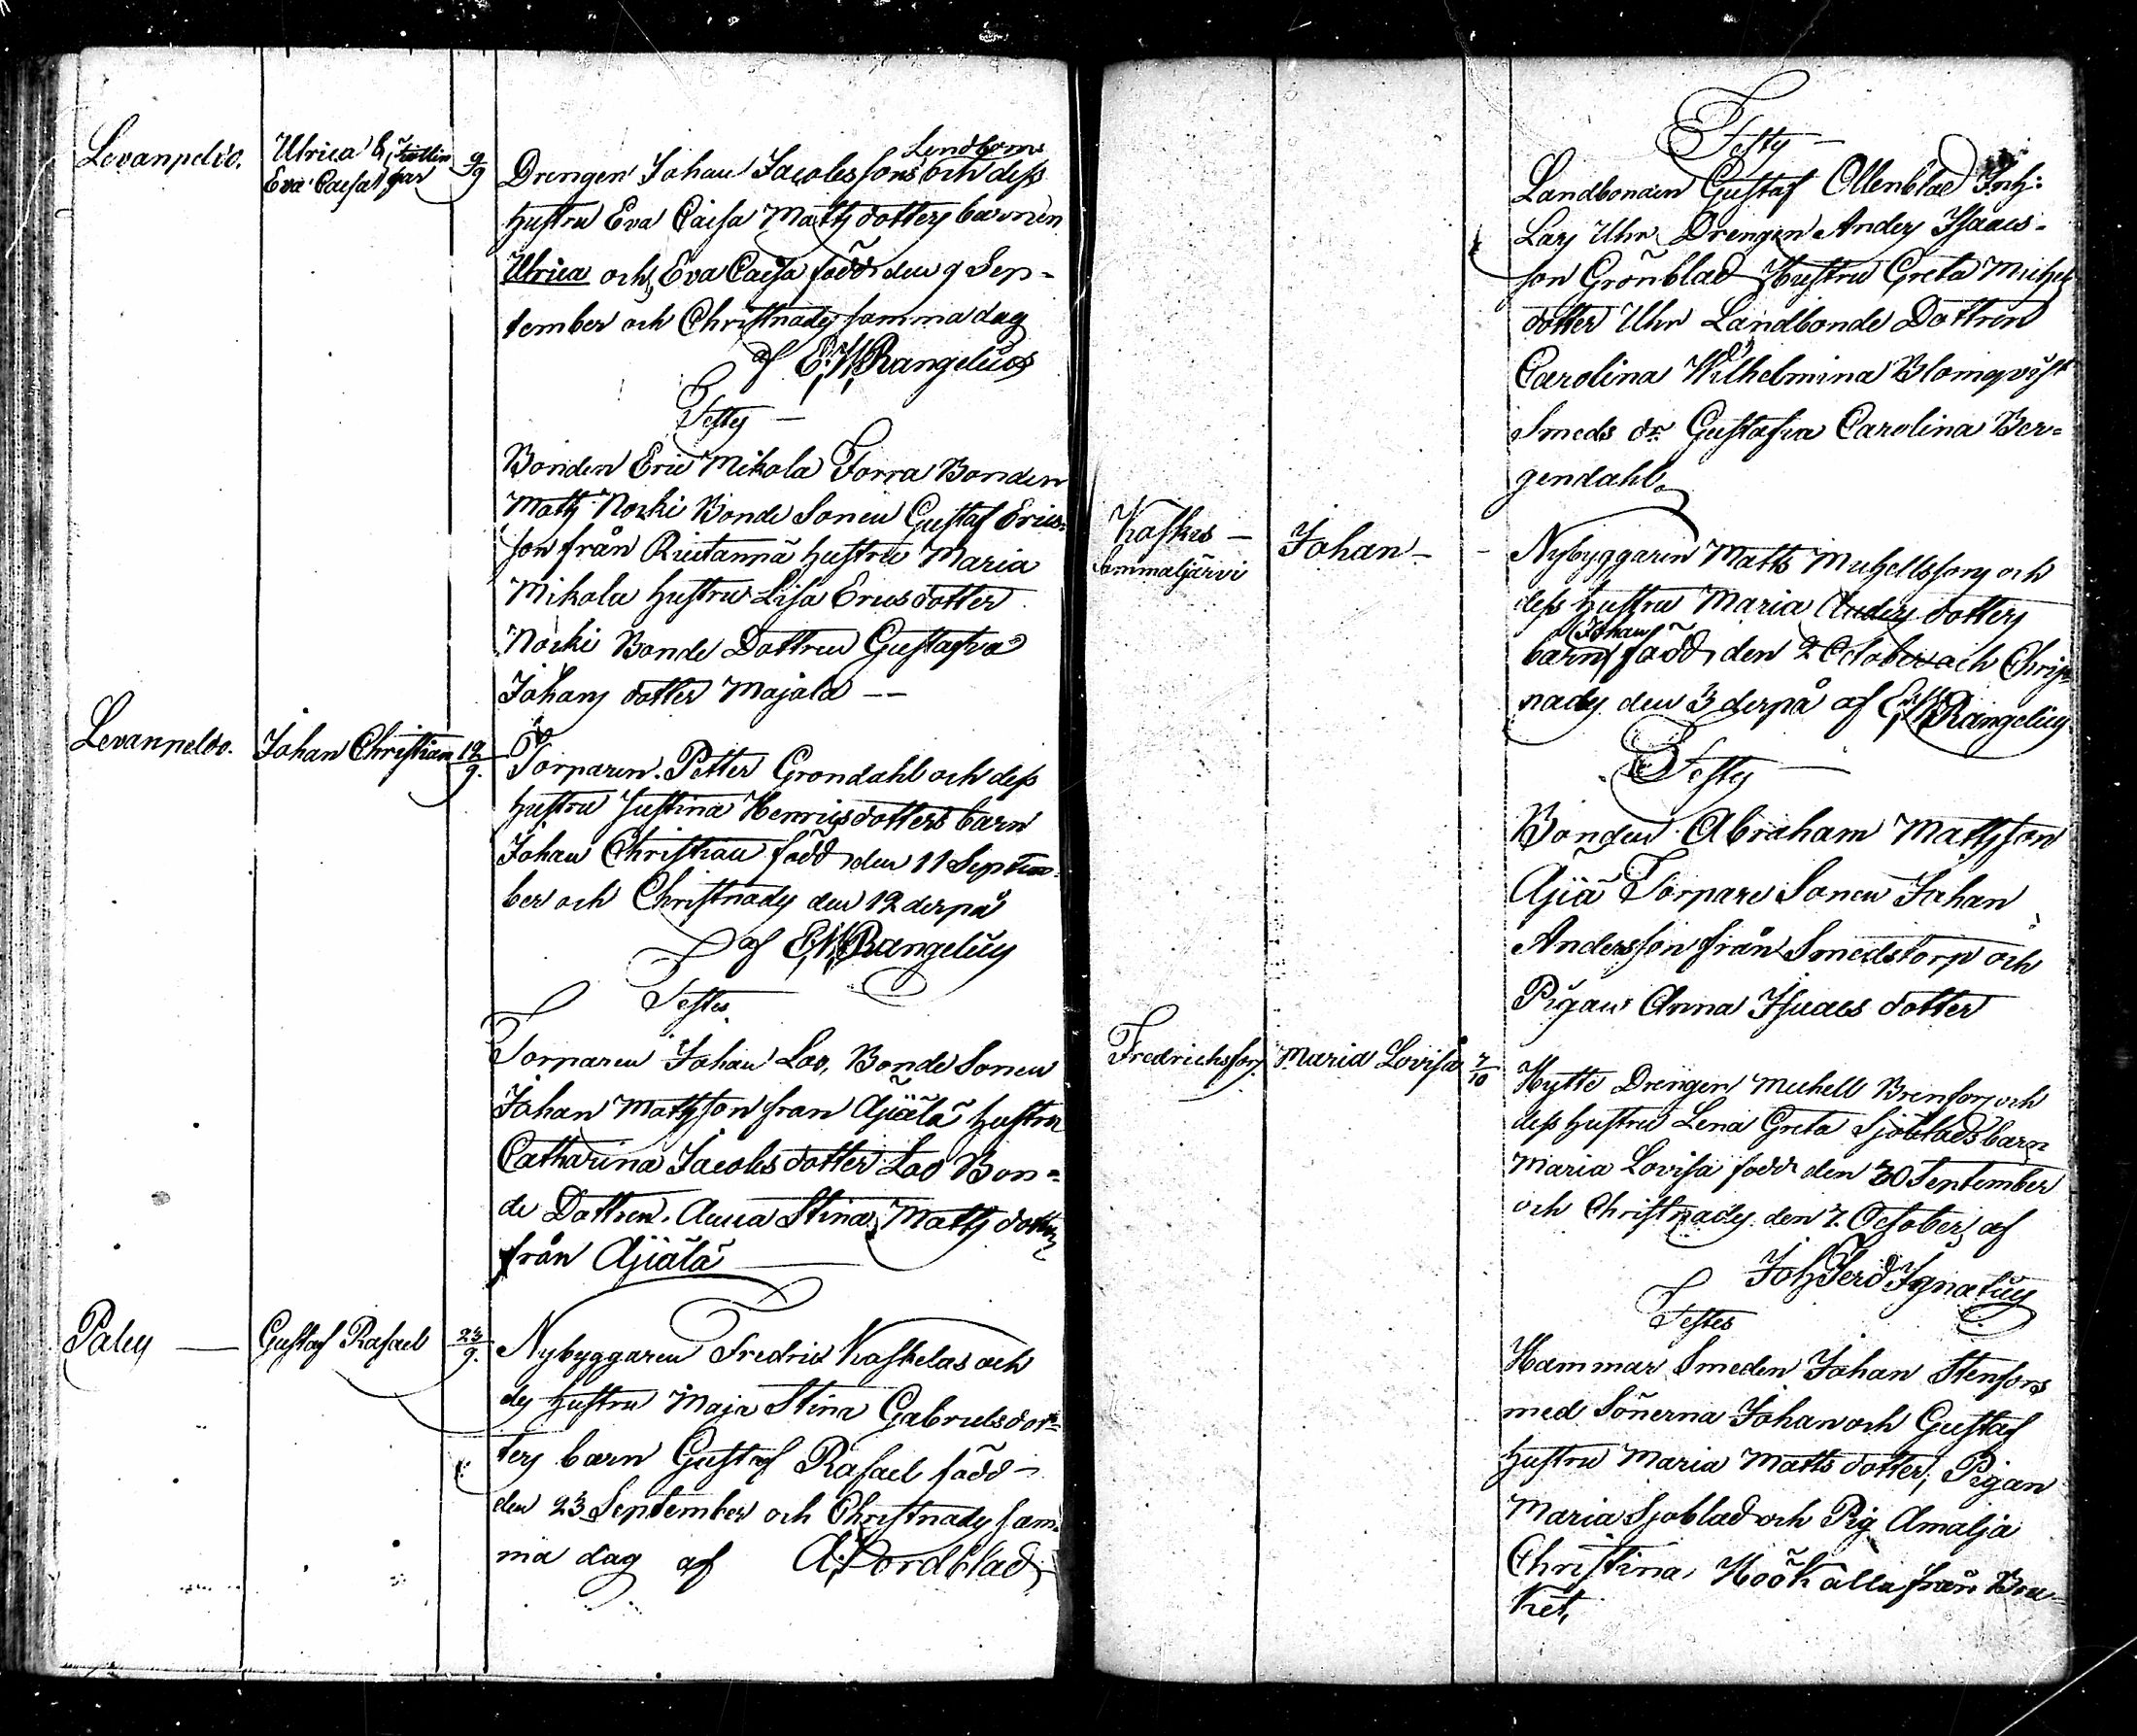 Levanpelto.
Ulrica & Tvillin
Eva Caisa gar
9/9
Lendboms
Drengen Johan Jacobssons och dess
hustru Eva Caisa Matts dotters barnen
Ulrica och Eva Caisa född den 9 Sep-
tember och Christnades samma dag
af E. W. Rangelius
Testes
Bonden Eric Mikola Torra Bonden
Matts Noski Bonde Sonen Gustaf Erics-
son från Riutanna hustru Maria
Mikola hustru Lisa Ericsdotter
Noski Bonde Dottren Gustafva
Johans dotter Majala
Levanpelto.
Johan Christian
12/9.
Torparen Petter Grondahl och dess
hustru Justina Henricsdotters barn
Johan Christian född den 11 Septem-
ber och Christnades den 12 derpå
af E. W. Rangelius
Testes
Torparen Johan Loo, Bonde Sonen
Johan Mattsson fran Ajiälä hustru
Catharina Jacobs dotter Loo Bon-
de Dottren Anna Stina Matts dotter
från Ajiälä
Palus
Gustaf Rafael
23/9.
Nybyggaren Fredric Koskelas och
des hustru Maja Stina Gabrielsdot-
ters barn Gustaf Rafael född
den 23 September och Christnades sam-
ma dag af A. Nordblad
Testes
Landbonden Gustaf Ollenblad Inh:
Lars Uhr Drengen Anders Isaacs-
son Grönblad Hustru Greta Michels
dotter Uhr Landbonde Dottren
Carolina Wilhelmina Blomqvist
Smeds dr. Gustafva Carolina Ber-
gendahl
Koskus-
lammaljärvi
Johan
Nybyggaren Matts Michellssons och
dess hustru Maria Anders dotters
Johan
barn född den 2 October och Christ-
nades den 3 derpå af E. W. Rangelius
Testes
Bonden Abraham Mattsson
Ajiä Torpare Sonen Johan
Andersson från Smedstorp och
Pigan Anna Isaacs dotter
Fredrichsfors.
Maria Lovisa
7/10
Hytte Drengen Michell Brenfors och
dess hustru Lena Greta Sjöblads barn
Maria Lovisa född den 30 September
och Christnades den 7. October af
Joh. Ferd. Ignatius
Testes
Hammar Smeden Johan Stenfors
med Sönerna Johan och Gustaf
hustru Maria Matts dotter, Pigan
Maria Sjoblad och Pig. Amalja
Christina Höök alla från Bru-
ket,